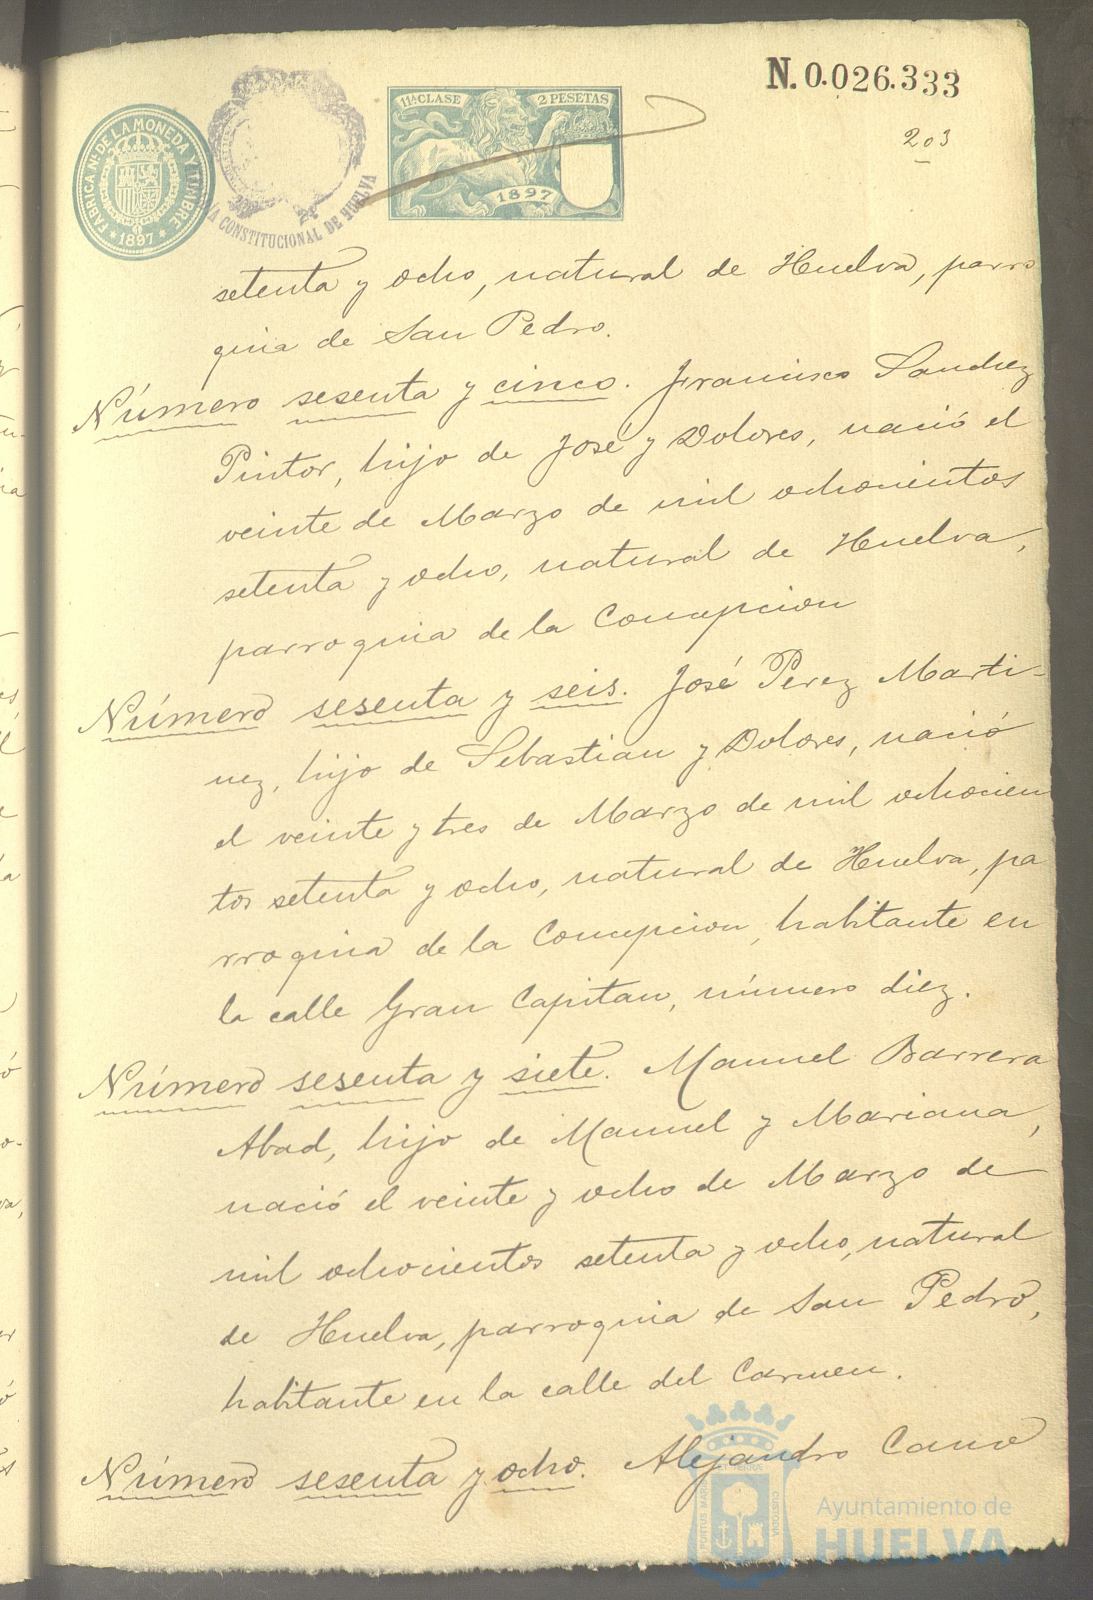 N. 0.026.333
203
FÁBRICA Nal. DE LA MONEDA Y TIMBRE
* 1897 *
CONSTITUCIONAL DE HUELVA
11ª CLASE 2 PESETAS
1897
setenta y ocho, natural de Huelva, parro
quia de San Pedro.
Número sesenta y cinco. Francisco Sanchez
Pintor, hijo de José y Dolores, nació el
veinte de Marzo de mil ochocientos
setenta y ocho, natural de Huelva,
parroquia de la Concepcion
Número sesenta y seis. José Perez Marti-
nez, hijo de Sebastian y Dolores, nació
el veinte y tres de Marzo de mil ochocien
tos setenta y ocho, natural de Huelva, pa
rroquia de la Concepcion, habitante en
la calle Gran Capitan, número diez.
Número sesenta y siete. Manuel Barrera
Abad, hijo de Manuel y Mariana,
nació el veinte y ocho de Marzo de
mil ochocientos setenta y ocho, natural
de Huelva, parroquia de San Pedro,
habitante en la calle del Carmen.
Número sesenta y ocho. Alejandro Cano
PORTUS MARIS CUSTODIA
Ayuntamiento de
HUELVA